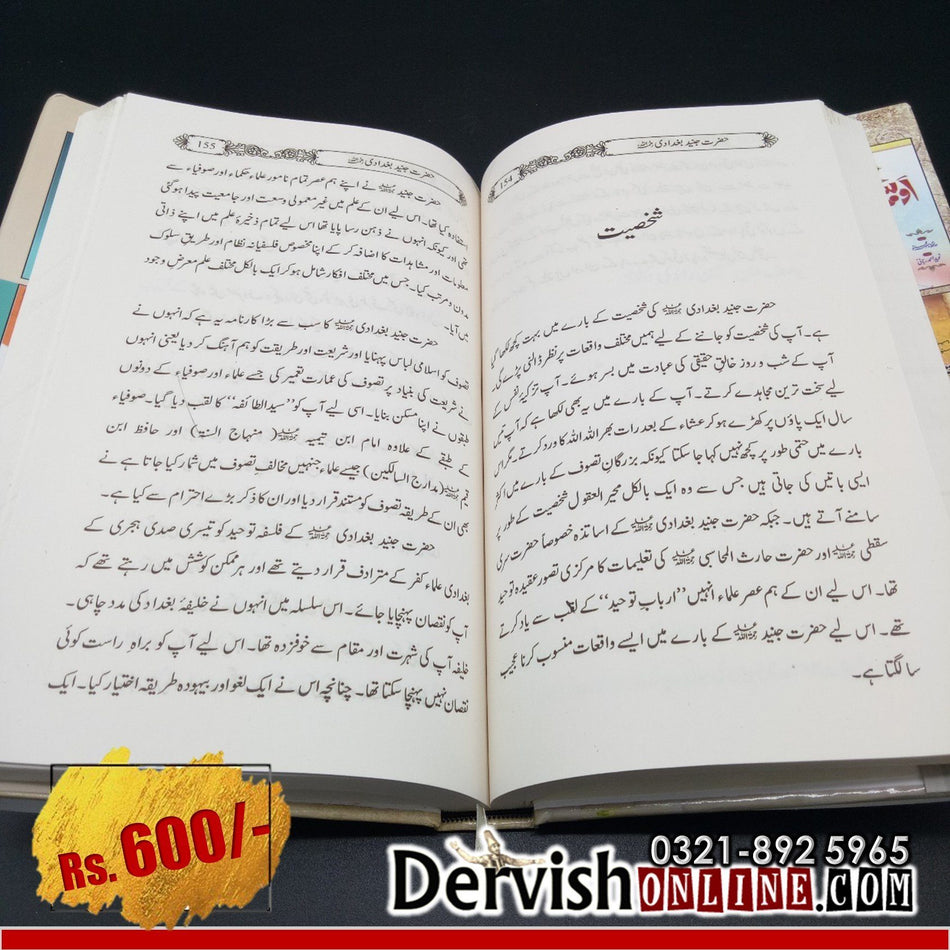 حضرت جنید بغدادی
154
شخصیت
حضرت جنید بغدادی کی شخصیت کے بارے میں بہت کچھ لکھا گیا
ہے۔ آپ کی شخصیت کو جاننے کے لیے ہمیں مختلف واقعات پر نظر ڈالنی پڑے گی۔
آپ کے شب و روز خالقِ حقیقی کی عبادت میں بسر ہوئے۔ آپ تزکیۂ نفس کے
لیے سخت ترین مجاہدے کرتے۔ آپ کے بارے میں یہ بھی لکھا ہے کہ آپ تیس
سال ایک پاؤں پر کھڑے ہو کر عشاء کے بعد رات بھر اللہ اللہ کا ورد کرتے۔ مگر اس
بارے میں حتمی طور پر کچھ نہیں کہا جا سکتا کیونکہ بزرگانِ تصوف کے بارے میں اکثر
ایسی باتیں کی جاتی ہیں جس سے وہ ایک بالکل محیر العقول شخصیت کے طور پر
سامنے آتے ہیں۔ جبکہ حضرت جنید بغدادی کے اساتذہ خصوصاً حضرت سری
سقطی اور حضرت حارث المحاسبی کی تعلیمات کا مرکزی تصور عقیدہ توحید
تھا۔ اس لیے ان کے ہم عصر علماء انہیں ’’اربابِ توحید‘‘ کے لقب سے یاد کرتے
تھے۔ اس لیے حضرت جنید کے بارے میں ایسے واقعات منسوب کرنا عجیب
سا لگتا ہے۔
155
حضرت جنید بغدادی
حضرت جنید نے اپنے ہم عصر تمام نامور علماء حکماء اور صوفیاء سے
استفادہ کیا تھا۔ اس لیے ان کے علم میں غیر معمولی وسعت اور جامعیت پیدا ہو گئی
تھی اور کیونکہ انہوں نے ذہن رسا پایا تھا اس لیے تمام ذخیرۂ علم میں اپنے ذاتی
معلومات اور مشاہدات کا اضافہ کر کے اپنا مخصوص فلسفیانہ نظام اور طریقِ سلوک
مدون و مرتب کیا۔ جس میں مختلف افکار شامل ہو کر ایک بالکل مختلف علم معرضِ وجود
میں آیا۔
حضرت جنید بغدادی کا سب سے بڑا کارنامہ یہ ہے کہ انہوں نے
تصوف کو اسلامی لباس پہنایا اور شریعت اور طریقت کو ہم آہنگ کر دیا یعنی انہوں
نے شریعت کی بنیاد پر تصوف کی عمارت تعمیر کی جسے علماء اور صوفیاء کے دونوں
طبقوں نے اپنا مسکن بنایا۔ اسی لیے آپ کو ’’سید الطائفہ‘‘ کا لقب دیا گیا۔ صوفیاء
کے طبقے کے علاوہ امام ابن تیمیہ (منہاج السنۃ) اور حافظ ابن
قیم (مدارج السالکین) جیسے علماء جنہیں مخالفِ تصوف میں شمار کیا جاتا ہے نے
بھی ان کے طریقہ تصوف کو مستند قرار دیا اور ان کا ذکر بڑے احترام سے کیا ہے۔
حضرت جنید بغدادی کے فلسفہ توحید کو تیسری صدی ہجری کے
بغدادی علماء کفر کے مترادف قرار دیتے تھے اور ہر ممکن کوشش میں رہتے تھے کہ
آپ کو نقصان پہنچایا جائے۔ اس سلسلہ میں انہوں نے خلیفۂ بغداد کی مدد چاہی۔
خلیفہ آپ کی شہرت اور مقام سے خوفزدہ تھا۔ اس لیے آپ کو براہِ راست کوئی
نقصان نہیں پہنچا سکتا تھا۔ چنانچہ اس نے ایک لغو اور بیہودہ طریقہ اختیار کیا۔ ایک
Rs. 600/-
0321-892 5965
DervishONLINE.COM